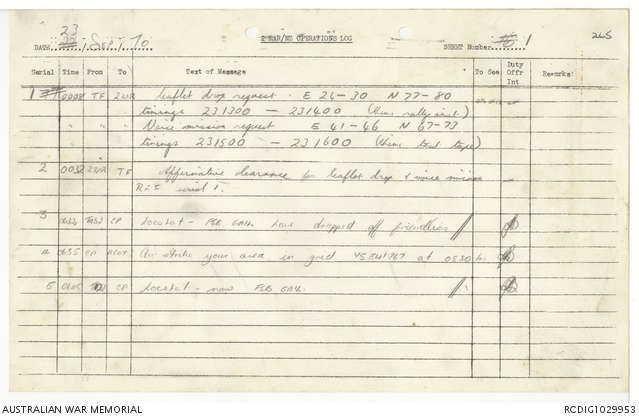 23
DATE / Sept / 70 2 RAR/NZ OPERATIONS LOG SHEET Number 1 265
Serial Time From To Text of Message To See Duty Offr Int Remarks
1 0008 TF 2WR leaflet drop request. E 24-30 N 77-80
timings 231300 - 231400 (theme rally inst)
" " " Voice mission request E 41-46 N 67-73
timings 231500 - 231600 (theme text tape)
2 0032 2WR TF Affirmative clearance for leaflet drop & voice mission
Ref serial 1.
3 CP Locstat - FSB GAIL have dropped off friendlies
4 0455 CP Air strike your area in grid YS 541767 at 0530 hrs
5 CP Locstat - now FSB GAIL
AUSTRALIAN WAR MEMORIAL RCDIG1029953